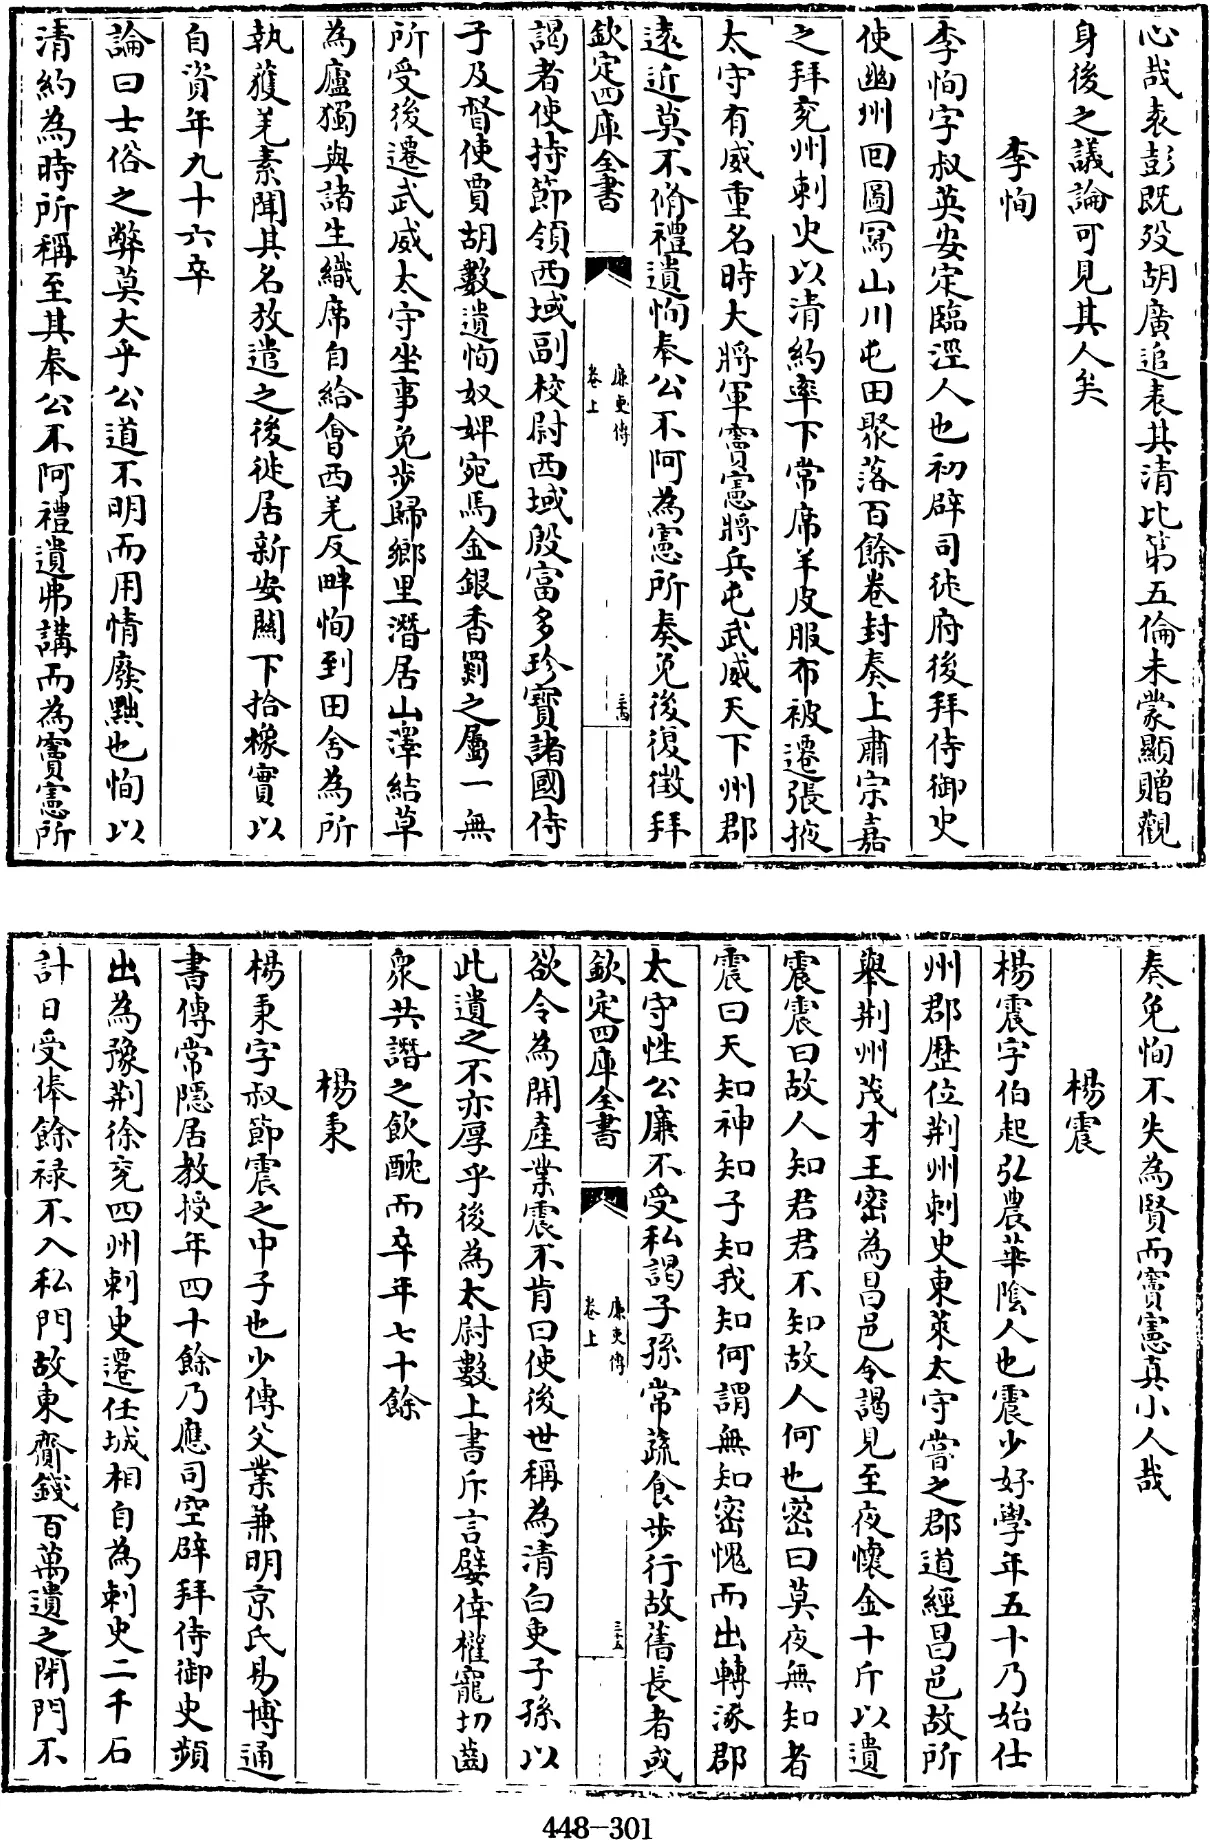 心哉袁彭既歿胡廣追表其清比第五倫未蒙顯贈觀
身後之議論可見其人矣
李恂
李恂字叔英安定臨涇人也初辟司徒府後拜侍御史
使幽州回圖寫山川屯田聚落百餘卷封奏上肅宗嘉
之拜兗州刺史以清約率下常席羊皮服布被遷張掖
太守有威重名時大將軍竇憲將兵屯武威天下州郡
遠近莫不脩禮遺恂奉公不阿為憲所奏免後復徵拜
欽定四庫全書
廉吏傳
卷上
三十四
謁者使持節領西域副校尉西域殷富多珍寶諸國侍
子及督使賈胡數遺恂奴婢宛馬金銀香罽之屬一無
所受後遷武威太守坐事免步歸鄉里潛居山澤結草
為廬獨與諸生織席自給會西羌反畔恂到田舍為所
執獲羌素聞其名放遣之後徙居新安關下拾橡實以
自資年九十六卒
論曰士俗之弊莫大乎公道不明而用情廢黜也恂以
清約為時所稱至其奉公不阿禮遺弗講而為竇憲所
奏免恂不失為賢而竇憲真小人哉
楊震
楊震字伯起弘農華陰人也震少好學年五十乃始仕
州郡歷位荆州刺史東萊太守嘗之郡道經昌邑故所
舉荆州茂才王密為昌邑令謁見至夜懷金十斤以遺
震震曰故人知君君不知故人何也密曰莫夜無知者
震曰天知神知子知我知何謂無知密愧而出轉涿郡
太守性公廉不受私謁子孫常蔬食步行故舊長者或
欽定四庫全書
廉吏傳
卷上
三十五
欲令為開產業震不肯曰使後世稱為清白吏子孫以
此遺之不亦厚乎後為太尉數上書斥言嬖倖權寵切齒
衆共譖之飲酖而卒年七十餘
楊秉
楊秉字叔節震之中子也少傳父業兼明京氏易博通
書傳常隱居教授年四十餘乃應司空辟拜侍御史頻
出為豫荆徐兗四州刺史遷任城相自為刺史二千石
計日受俸餘祿不入私門故東齎錢百萬遺之閉門不
448-301